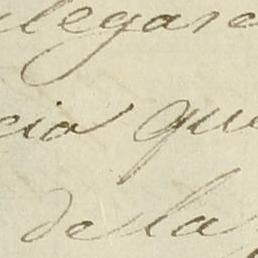 legar
cia que
de la